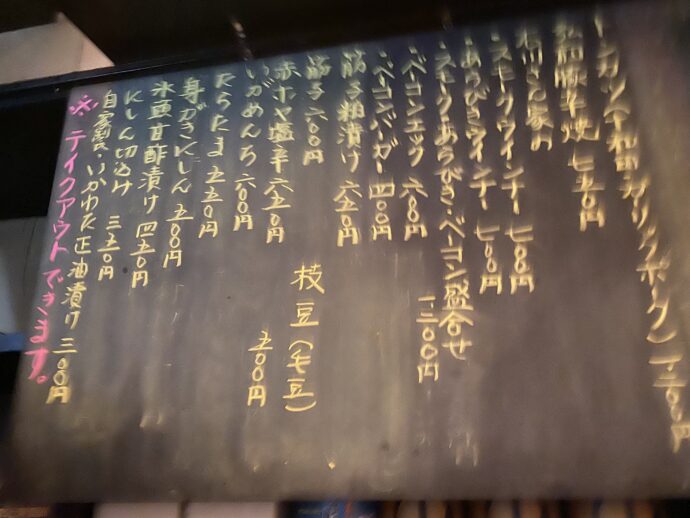 トンカツ(十和田ガーリックポーク)一、二〇〇円
豚辛焼 七五〇円
石川さん家の
・スモークウインナー 七〇〇円
・あらびきウインナー 七〇〇円
・スモーク・あらびき・ベーコン盛合せ 一、二〇〇円
・ベーコンエッグ 六〇〇円
・ベーコンバーガー 四〇〇円
筋子粕漬け 六五〇円
筋子 六〇〇円
枝豆(毛豆) 五〇〇円
赤ホヤ塩辛 六五〇円
いがめんち 六〇〇円
たらたま 五五〇円
身がきにしん 五〇〇円
氷頭甘酢漬け 四五〇円
にしん切込み 三五〇円
自家製・いかわた正油漬け 三〇〇円
※テイクアウトできます。